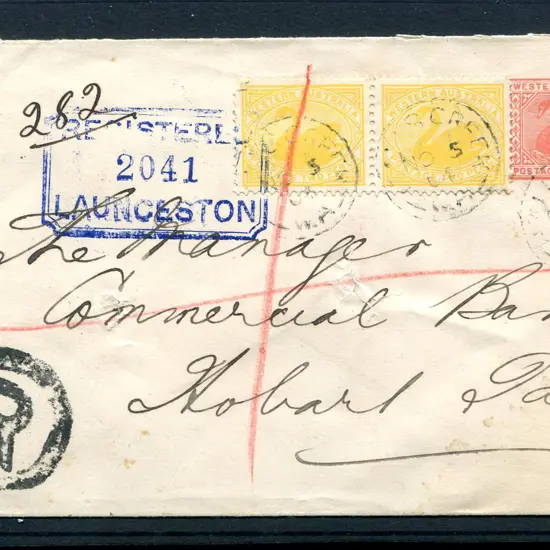 282
REGISTERED
2041
LAUNCESTON
WESTERN AUSTRALIA
WESTERN AUSTRALIA
WESTE
POSTAG
5
W.A.
5
W.A.
R
The Manager
Commercial Ban
Hobart Ta